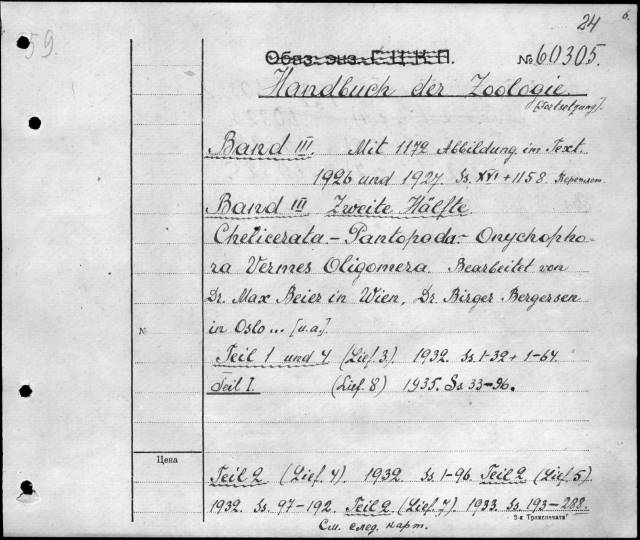 24 6.
59.
Обяз. экз. Г.Ц.К.П. № 60305.
Handbuch der Zoologie.
[Fortsetzung].
Band III. Mit 1172 Abbildung. im Text.
1926 und 1927. Ss. XVI + 1158. Переплет
Band III Zweite Hälfte
Chelicerata.- Pantopoda.- Onychopho-
ra Vermes Oligomera. Bearbeitet von
Dr. Max Beier in Wien, Dr. Birger Bergersen
№ in Oslo ... [u.a.].
Teil 1 und 4 (Lief. 3.) 1932. Ss. 1-32 + 1-64.
Teil I. (Lief. 8) 1935. Ss. 33-96.
Цена
Teil 2 (Lief. 4). 1932. Ss. 1-96. Teil 2 (Lief. 5).
1932. Ss. 97-192. Teil 2 (Lief. 7.) 1933. Ss. 193-288.
См. след. карт.